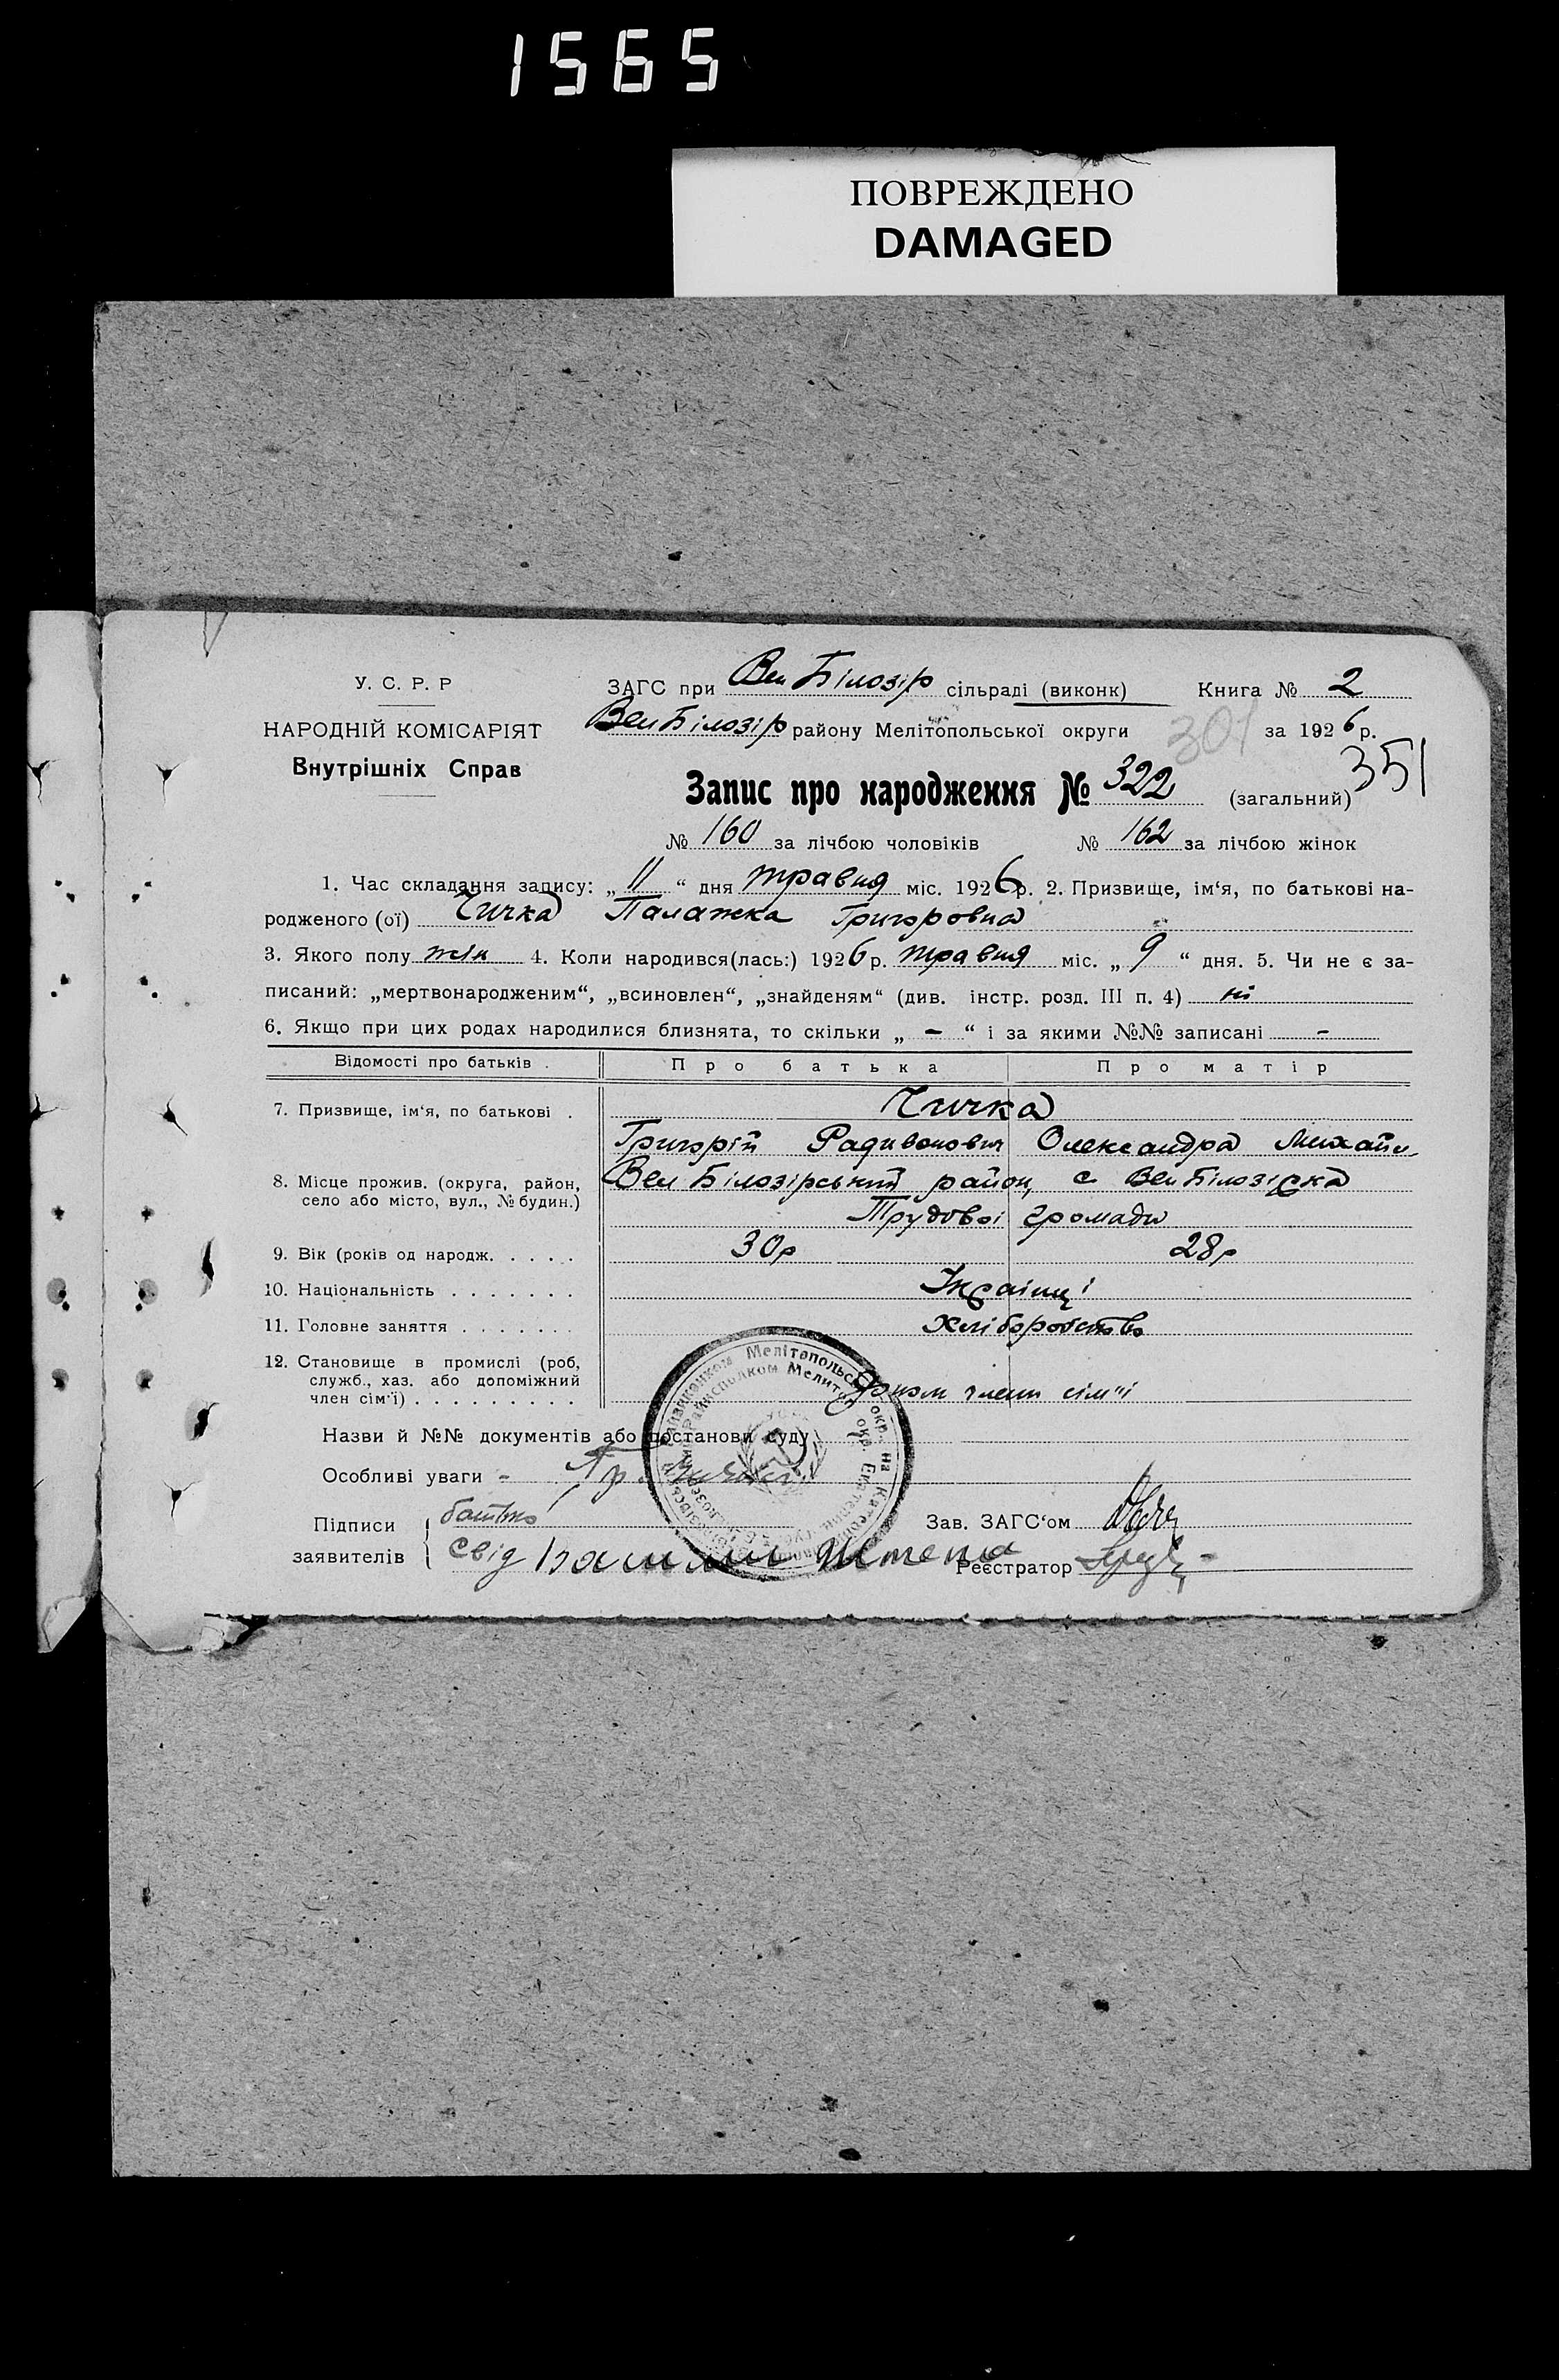 1565
ПОВРЕЖДЕНО
DAMAGED
У. С. Р. Р
НАРОДНІЙ КОМІСАРІЯТ
Внутрішніх Справ
ЗАГС при Вел Білозір сільраді (виконк) Книга № 2
Вел Білозір району Мелітопольської округи за 1926 р.
301
351
Запис про народження № 322 (загальний)
№ 160 за лічбою чоловіків № 162 за лічбою жінок
1. Час складання запису: „ 11 “ дня травня міс. 1926 р. 2. Призвище, ім'я, по батькові на-
родженого (ої) Чичка Палажка Григоровна
3. Якого полу жін 4. Коли народився(лась:) 1926 р. травня міс. „ 9 “ дня. 5. Чи не є за-
писаний: „мертвонародженим“, „всиновлен“, „знайденям“ (див. інстр. розд. III п. 4) ні
6. Якщо при цих родах народилися близнята, то скільки „ - “ і за якими №№ записані -
Відомості про батьків . Про батька Про матір
7. Призвище, ім'я, по батькові . Чичка
Григорій Радивонович Олександра Михайл
8. Місце прожив. (округа, район, село або місто, вул., № будин.) Вел Білозірський район, с Вел Білозірка
Трудової громади
9. Вік (років од народж. . . . . 30р 28р
10. Національність . . . . . . . Українці
11. Головне заняття . . . . . . . хліборобство
12. Становище в промислі (роб,
служб., хаз. або допоміжний
член сім'ї) . . . . . . . . . члени сім'ї
Назви й №№ документів або постанови суду
Особливі уваги -
Підписи заявителів
батько
свід Штепа
Зав. ЗАГС'ом
Реєстратор